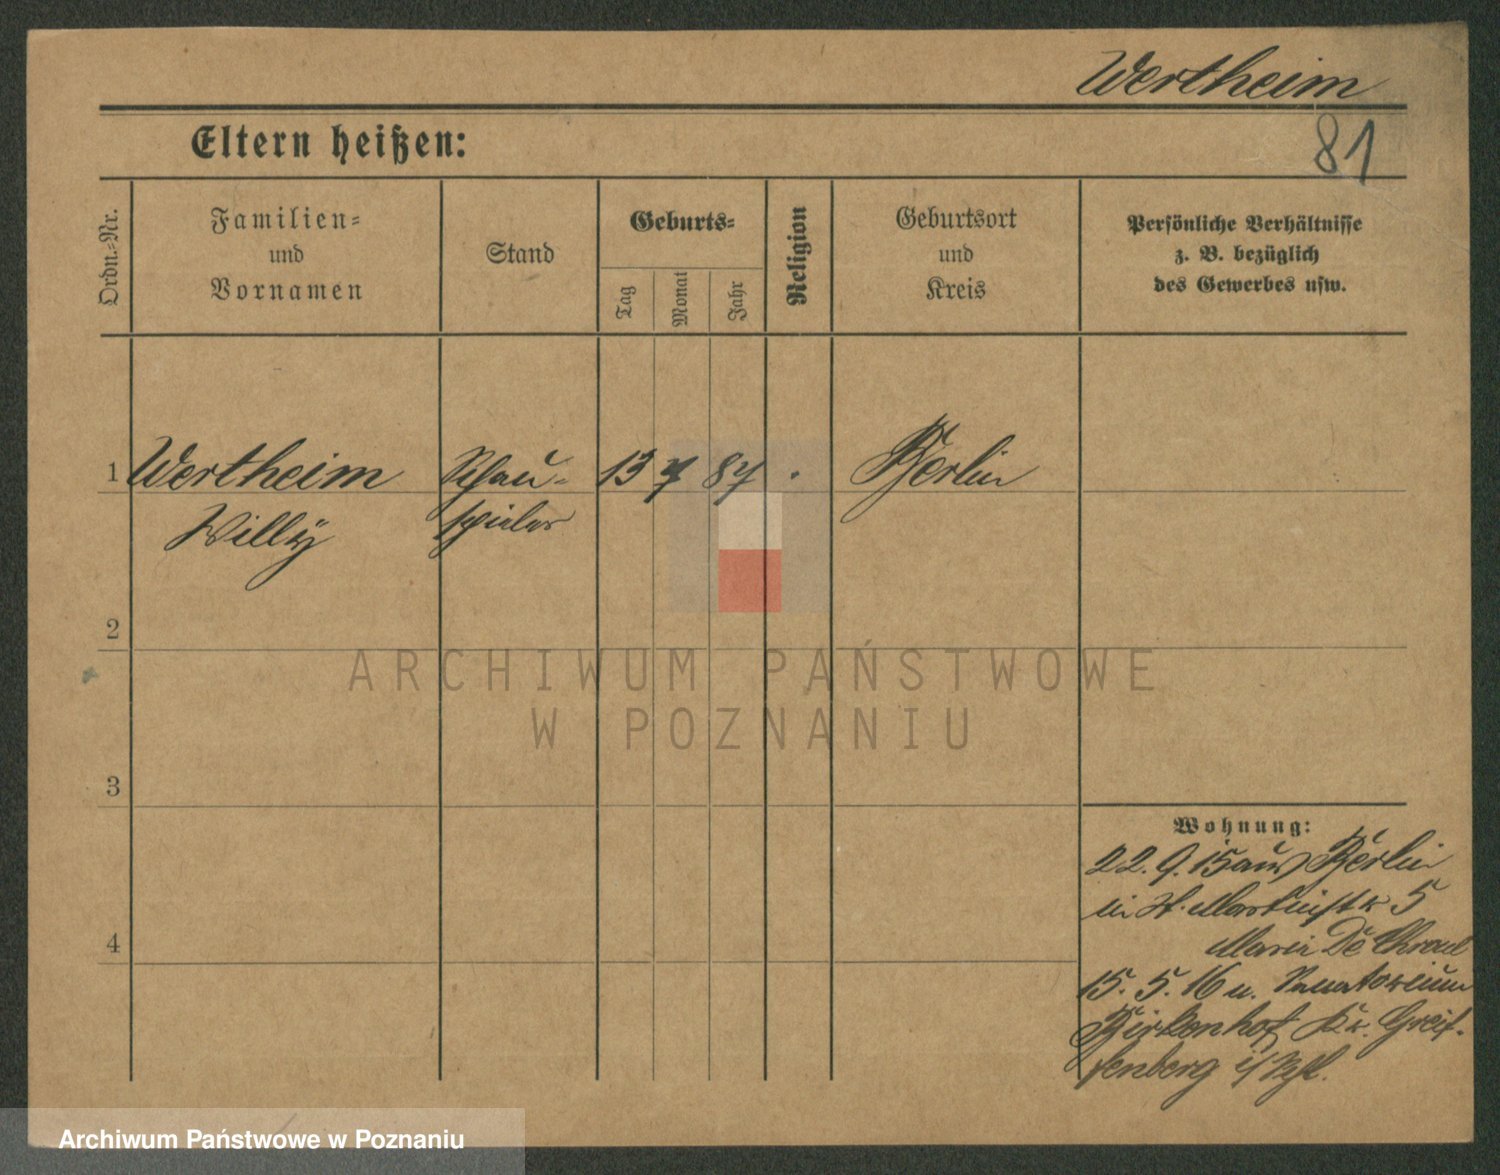 Wertheim
Eltern heißen:
81
Ordn.-Nr.
Familien-
und
Vornamen
Stand
Geburts-
Tag
Monat
Jahr
Religion
Geburtsort
und
Kreis
Persönliche Verhältnisse
z. B. bezüglich
des Gewerbes usw.
1 Wertheim Schau- 13 7 87 . Berlin
Willy spieler
2
3
4
ARCHIWUM PAŃSTWOWE
W POZNANIU
Wohnung:
22.9.15 aus Berlin
in St. Martinstr 5
Maria
15. 5. 16 n. Sanatorium
Birkenhof Kr. Greif-
fenberg i/
Archiwum Państwowe w Poznaniu